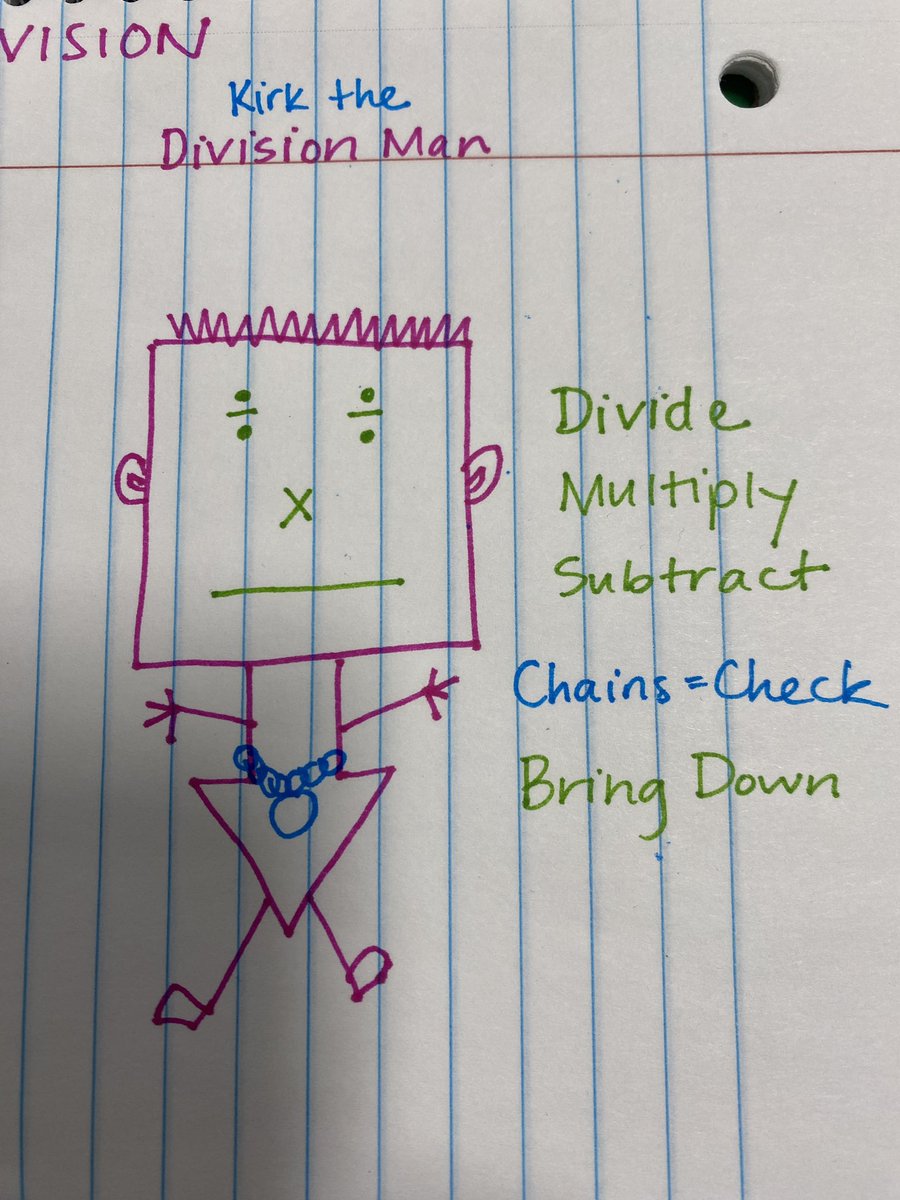 VISION
Kirk the
Division Man
÷ ÷
x
Divide
Multiply
Subtract
Chains = Check
Bring Down